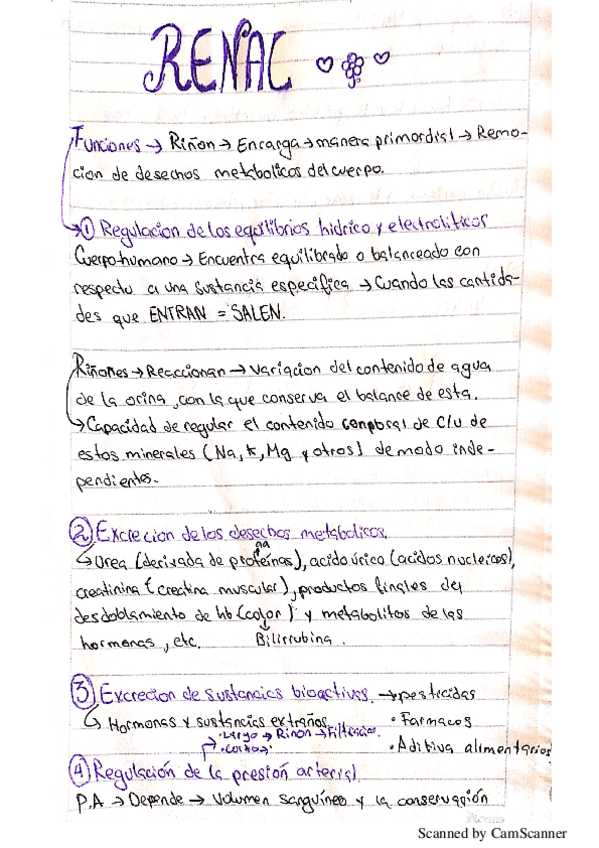 RENAL
Funciones → Riñon → Encarga → manera primordial → Remo-
cion de desechos metabolicos del cuerpo.
① Regulacion de los equilibrios hidrico y electroliticos
Cuerpo humano → Encuentra equilibrado o balanceado con
respecto a una sustancia especifica → Cuando las cantida-
des que ENTRAN = SALEN.
Riñones → Reaccionan → variacion del contenido de agua
de la orina, con la que conserva el balance de esta.
→ Capacidad de regular el contenido corporal de c/u de
estos minerales (Na, K, Mg y otros) de modo inde-
pendientes.
② Excrecion de los desechos metabolicos.
aa
Urea (derivada de proteinas), acido úrico (acidos nucleicos),
creatinina (creatina muscular), productos finales del
desdoblamiento de hb (color) y metabolitos de las
hormonas, etc. Bilirrubina.
③ Excrecion de sustancias bioactivas. → pesticidas
Hormonas y sustancias extrañas • Farmacos
• Largo → Riñon → Filtración.
• Corto → • Aditiva alimentarios
④ Regulación de la presión arterial
P.A → Depende → Volumen sanguíneo y la conservación
Scanned by CamScanner